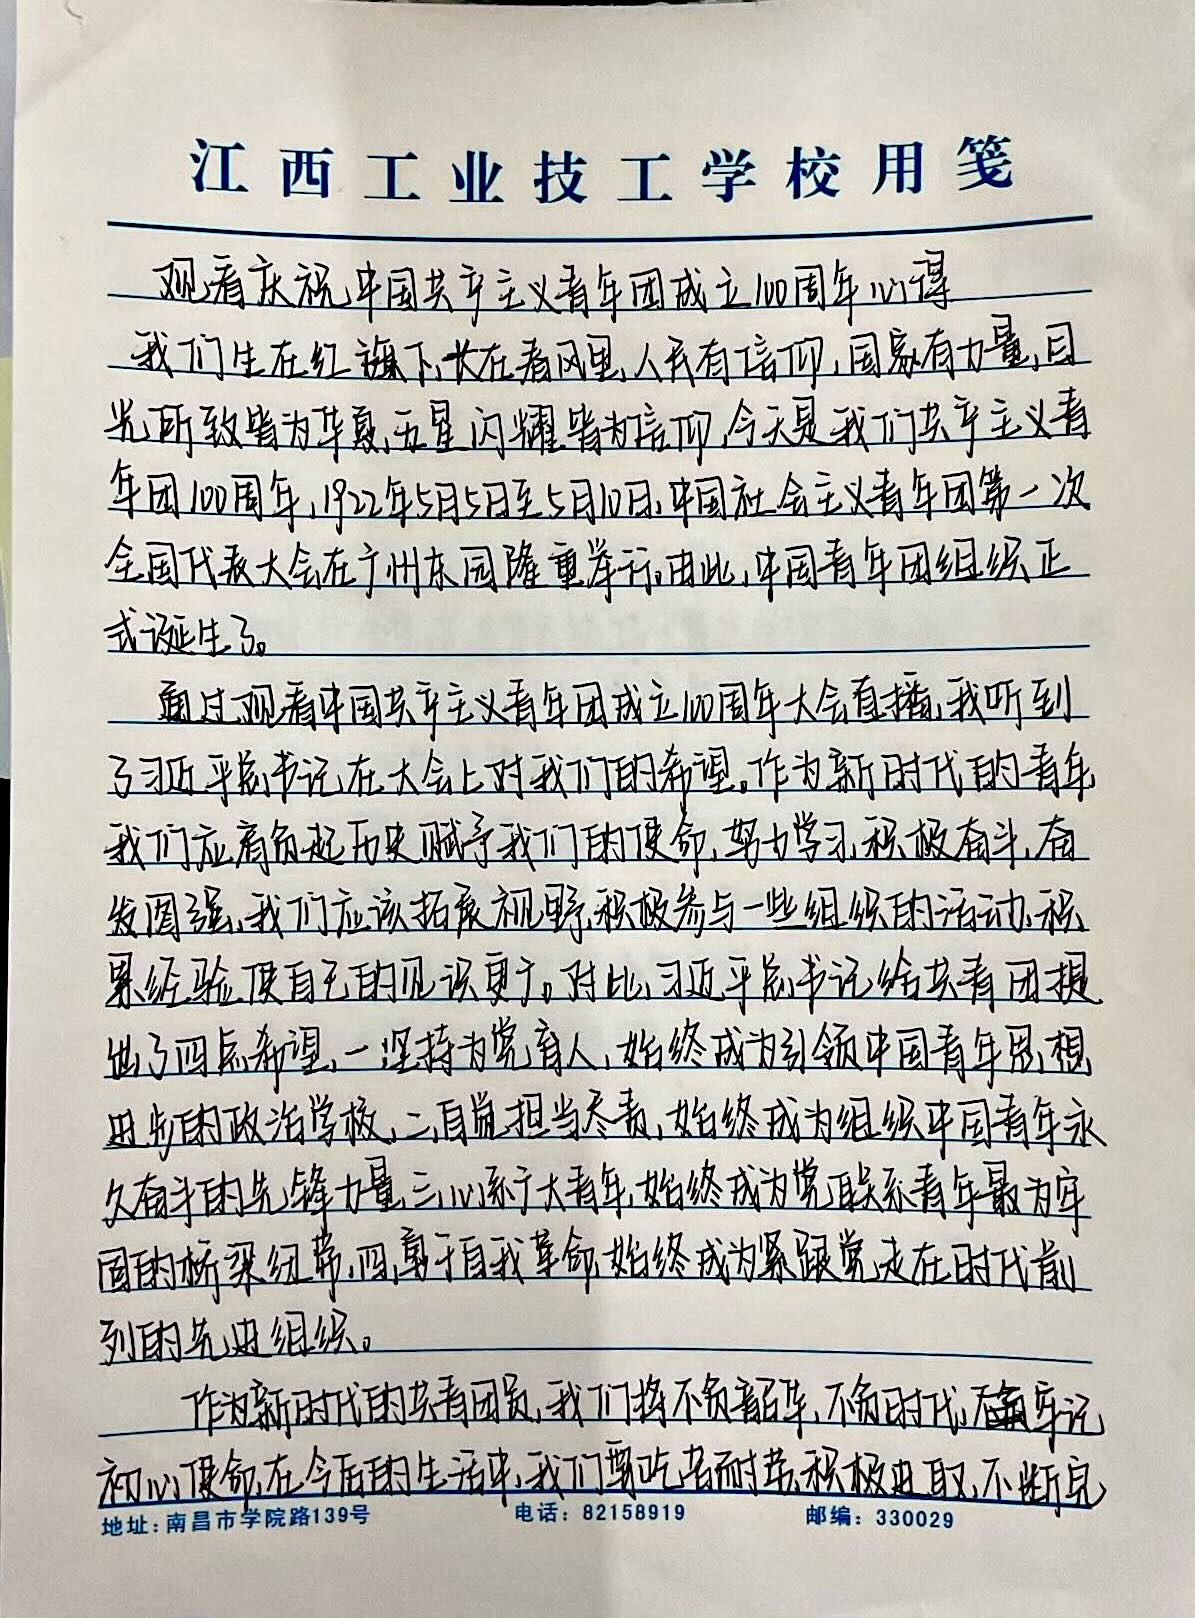 江西工业技工学校用笺
观看庆祝中国共产主义青年团成立100周年心得
我们生在红旗下,长在春风里,人民有信仰,国家有力量,目
光所致皆为华夏,五星闪耀皆为信仰,今天是我们共产主义青
年团100周年,1922年5月5日至5月10日,中国社会主义青年团第一次
全国代表大会在广州东园隆重举行。由此,中国青年团组织正
式诞生了。
通过观看中国共产主义青年团成立100周年大会直播,我听到
了习近平总书记在大会上对我们的希望。作为新时代的青年
我们应肩负起历史赋予我们的使命,努力学习,积极奋斗,奋
发图强,我们应该拓展视野,积极参与一些组织的活动,积
累经验使自己的见识更广。对此,习近平总书记给共青团提
出了四点希望,一坚持为党育人,始终成为引领中国青年思想
进步的政治学校,二,自觉担当尽责,始终成为组织中国青年永
久奋斗的先锋力量,三,心系广大青年,始终成为党联系青年最为牢
固的桥梁纽带,四,勇于自我革命,始终成为紧跟党走在时代前
列的先进组织。
作为新时代的共青团员,我们将不负韶华,不负时代,牢记
初心使命,在今后的生活中,我们要吃苦耐劳,积极进取,不断完
地址:南昌市学院路139号 电话:82158919 邮编:330029